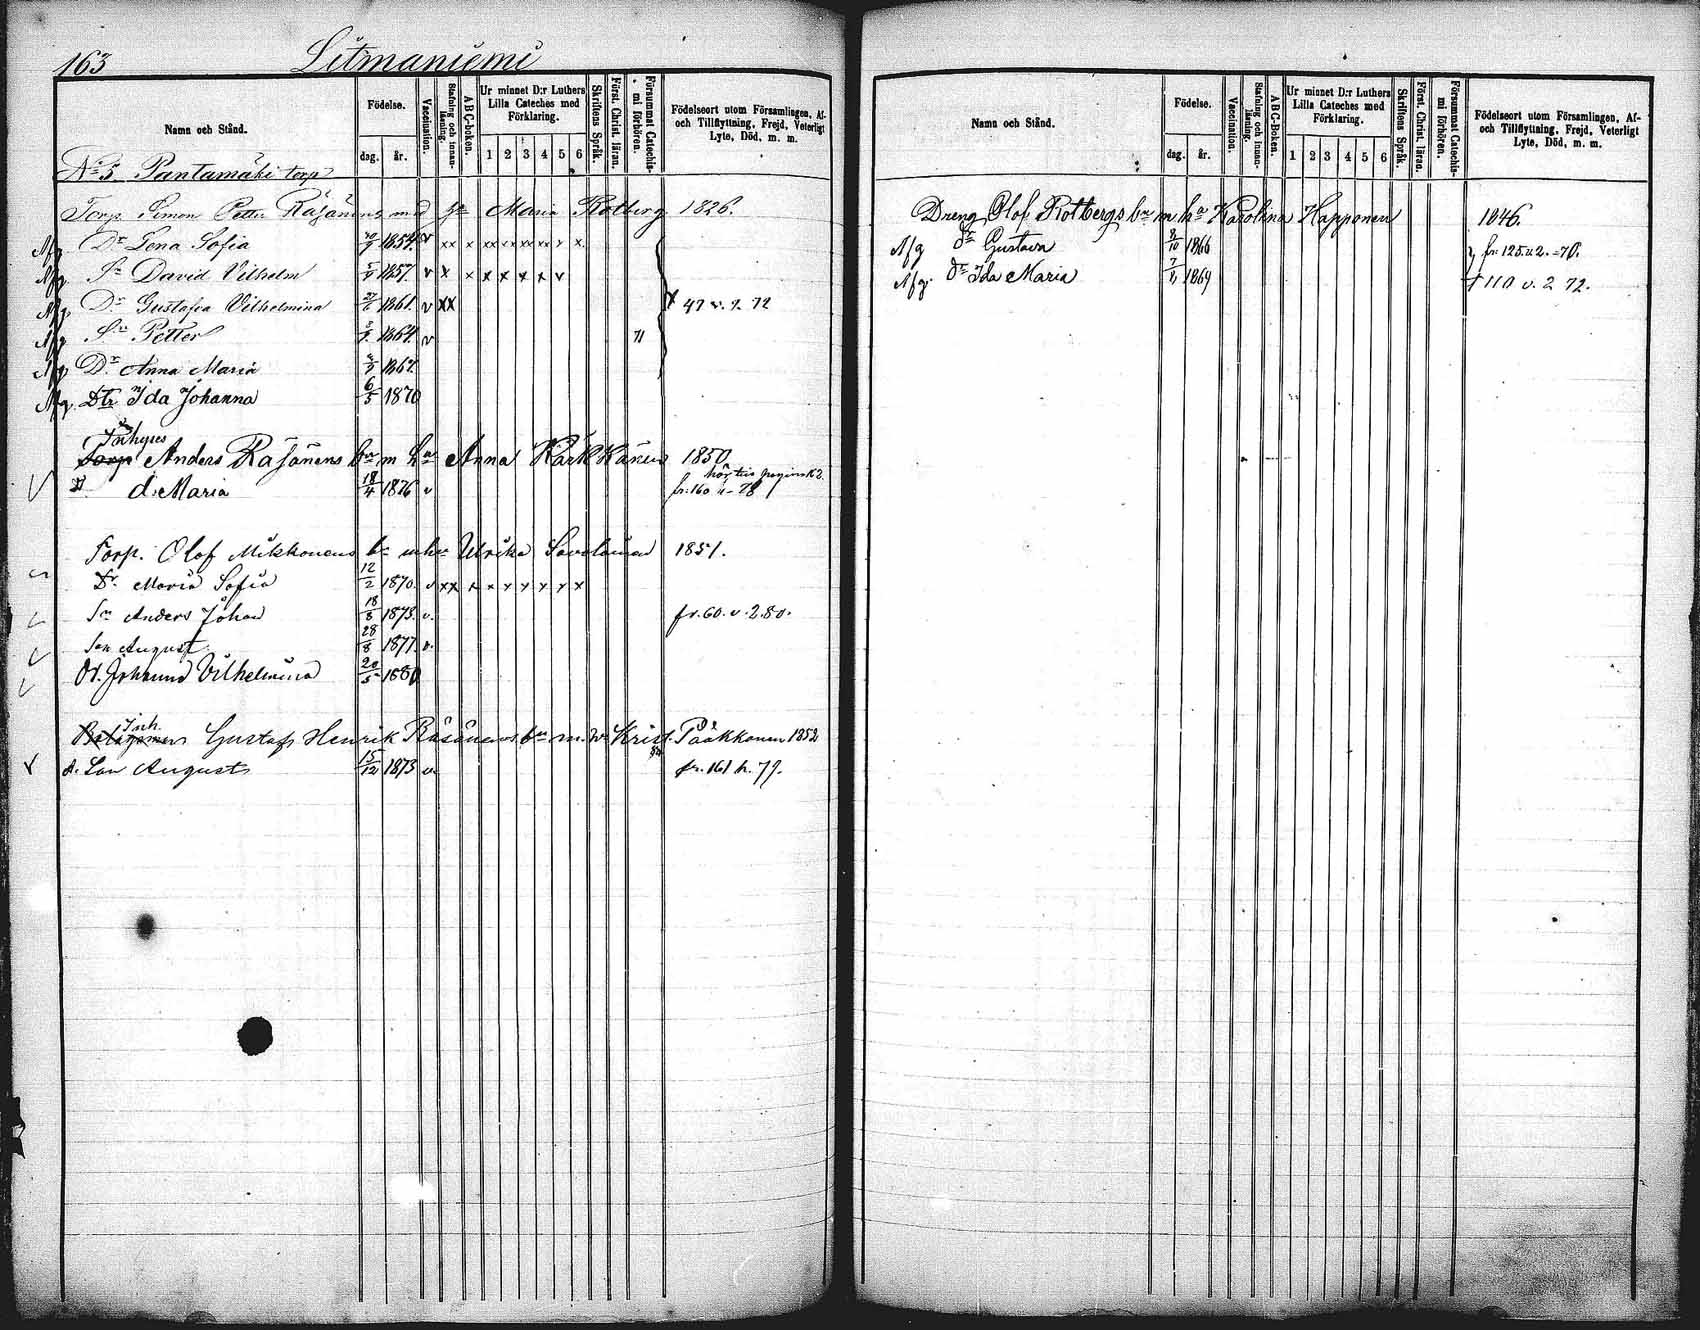 163 Litmaniemi
Namn och Stånd.
Födelse.
dag. år.
Vaccination.
Stafning och innanläsning.
A B C-boken.
Ur minnet D:r Luthers Lilla Cateches med Förklaring.
1 2 3 4 5 6
Skriftens Språk.
Först. Christ. läran.
Försummat Catechismi förhören.
Födelseort utom Församlingen, Af- och Tillflyttning, Frejd, Veterligt Lyte, Död, m. m.
No 5 Pantamäki torp
Torp. Simon Petter Räsänens med Maria Rotberg 1826.
Afg Dr Lena Sofia 1854. v xx x xx xx xx xx y x
Afg Sn David Vilhelm 1857. v x x x x x x v
Afg Dr Gustafva Vilhelmina 1861. v xx x 47 v. 2 72
Afg Sn Petter 1864. v 71
Afg Dr Anna Maria 1867.
Afg. Dtr Ida Johanna 6/5 1870
Inhyses
Torp Anders Räsänens bn m ha Anna Kärkkänen 1850
d. Maria 18/4 1876 v fr. 160 78
Torp. Olof Mikkonens bn m ha Ulrika Savolainen 1851.
Dr. Maria Sofia 12/2 1870. v xx x x y y y y x
Sn Anders Johan 18/8 1873. v. fr. 60. v. 2. 80.
Son August 28/8 1877. v.
Dt. Johanna Vilhelmina 20/5 1880
Inh.
Gustaf Henrik Räsänens bn m. Krist. Pääkkönen 1852
Son August 15/12 1873 v. fr. 161 h. 79.
Namn och Stånd.
Födelse.
dag. år.
Vaccination.
Stafning och innanläsning.
A B C-Boken.
Ur minnet D:r Luthers Lilla Cateches med Förklaring.
1 2 3 4 5 6
Skriftens Språk.
Först. Christ. läran.
Försummat Catechismi förhören.
Födelseort utom Församlingen, Af- och Tillflyttning, Frejd, Veterligt Lyte, Död, m. m.
Dreng Olof Rotbergs bn m ha Karolina Happonen 1846.
Afg dr Gustava 8/10 1866 fr. 125 v. 2. 70.
Afg. dr Ida Maria 7/11 1869 110 v. 2 72.